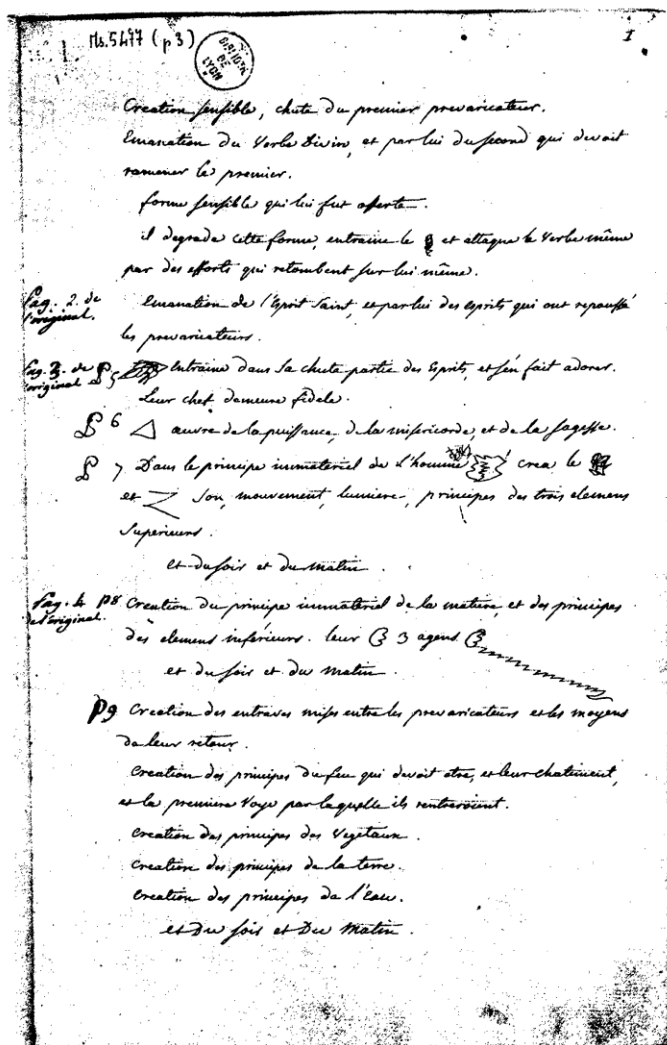 Ms. 5477 (p 3)
BIBLIOTH. DE LYON
I
Creation sensible, chute du premier prevaricateur.
Emanation du Verbe Divin, et par lui du second qui devoit
ramener le premier.
forme sensible qui lui fut offerte.
il degrada cette forme, entraine le et attaque le Verbe même
par des efforts qui retombent sur lui même.
Pag. 2. de l'original.
Emanation de l'Esprit Saint, et par lui des esprits qui ont repoussé
les prevaricateurs.
Pag. 3. de l'original
5 Entraine dans sa chute partie des Esprits, et s'en fait adorer.
Leur chef demeure fidele.
6 œuvre de la puissance, de la misericorde, et de la sagesse.
7 Dans le principe immateriel de L'homme crea le
et son, mouvement, lumiere, principes des trois elemens
Superieurs.
et du soir et du matin.
Pag. 4 de l'original.
p8 Creation du principe immateriel de la matiere, et des principes
des elemens inférieurs. leur 3 agens
et du soir et du matin.
p9 Creation des entraves mises entre les prevaricateurs et les moyens
de leur retour.
Creation des principes du feu qui devoit etre, et leur chatiment,
et la premiere Voye par laquelle ils rentreroient.
Creation des principes des Vegetaux.
Creation des principes de la terre.
Creation des principes de l'Eau.
et Du soir et Du Matin.